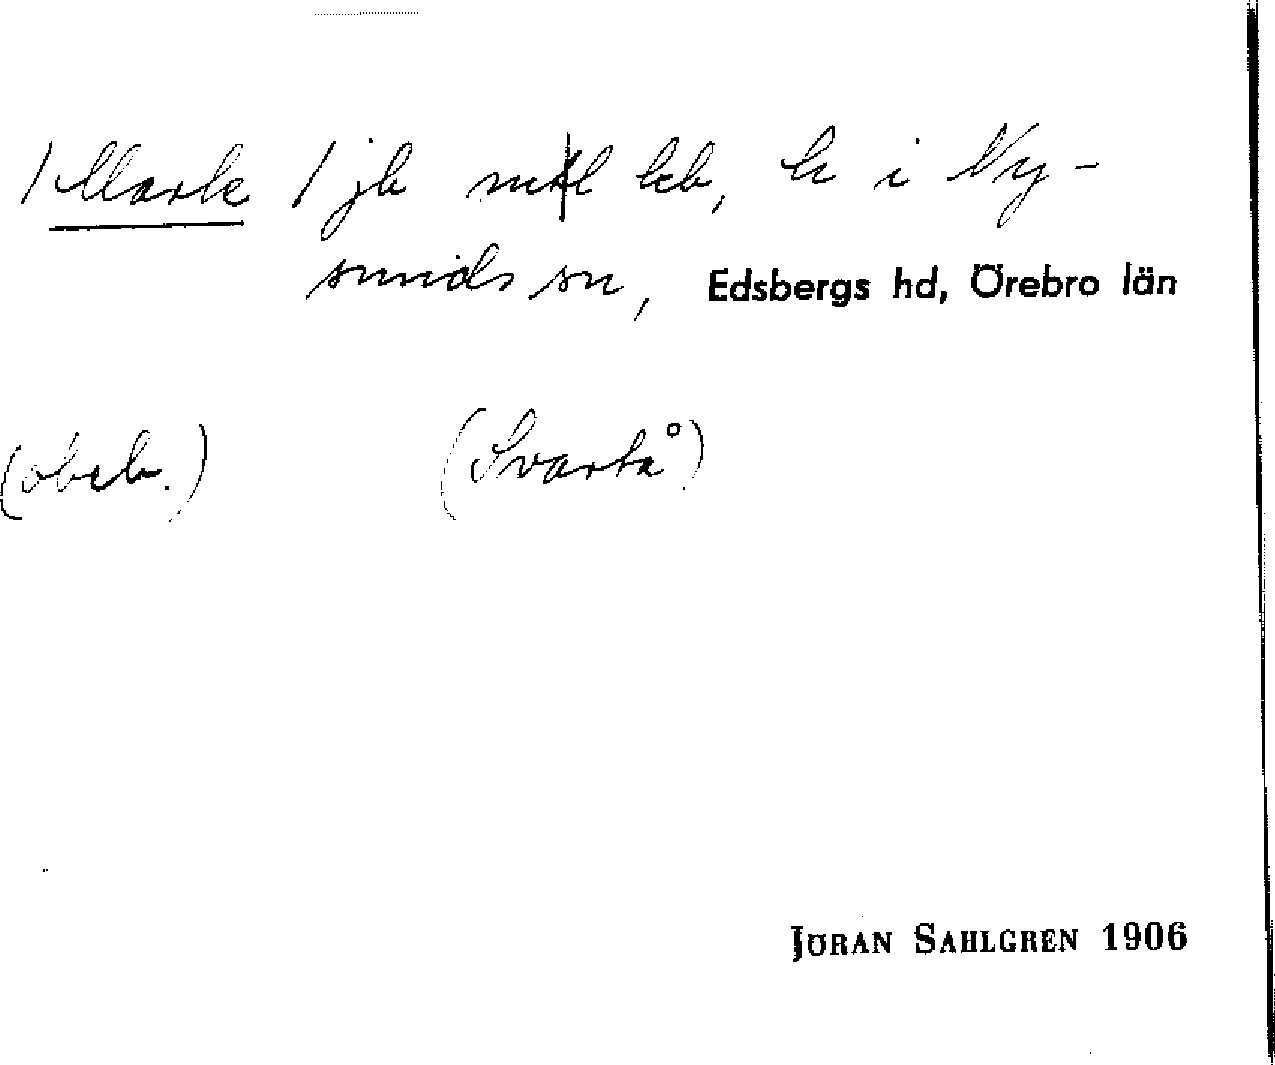 / Mark / jb m l kb, h i Ny-
sunds sn, Edsbergs hd, Örebro län
(obeb.) (Svartå)
JÖRAN SAHLGREN 1906